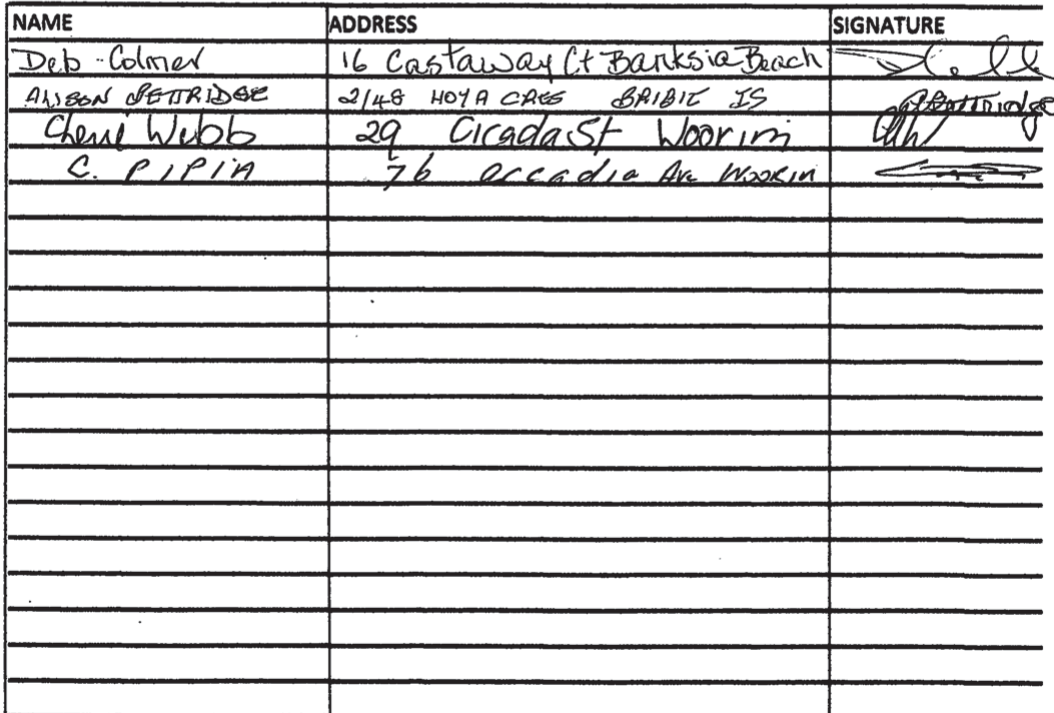 NAME ADDRESS SIGNATURE
Deb Colmer 16 Castaway Ct Banksia Beach
ALISON BETTRIDGE 2/48 HOYA CRES BRIBIE IS ABettridge
Cherie Webb 29 Cicada St Woorim
C. PIPIA 76 arcadia Ave WOORIM